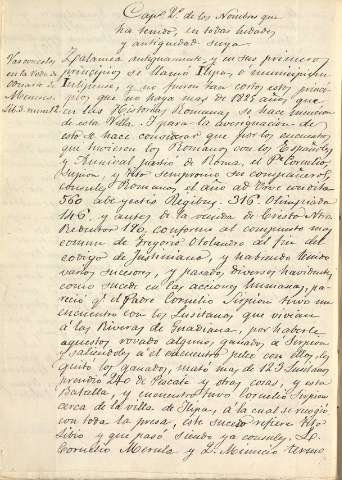 Cap.º 2.º de los Nombres que
ha tenido, en todas hedades
y antiguedad suya
Vasconcelos
en la Vida de
Menecio
Lib.3. num.12
Zpalamea antiguamente, y en sus primeros
principios se llamó Ilipa, o municipium
y no fueron tan cortos estos princi-
pios, que no haya mas de 1825 años que
en las Historias Romanas, se hace mencion
de esta Villa. I para la averiguacion de
esto se hace considerar que por los encuentros
que tuvieron los Romanos con los Españoles
y Annival partió de Roma, el P.º Cornelio
Scipion, y Tito Sempronio sus compañeros
consules Romanos, el año ad Urbe condita
560 abe yectio Régibus 316. Olimpiada
146, y antes de la venida de Cristo Ntro
Redentor 190, conforme al computo mas
comun de Gregorio Oloandro al fin del
codigo de Justiniano, y habiendo tenido
varios sucesos, y pasado, diversos
como sucede en las acciones humanas, pa-
reció q.e el Padre Cornelio Scipion tuvo un
encuentro con los Lusitanos que vivian
á las Riveras de Guadiana, por haberle
aquestos rovado algunos, ganados, a Scipion
y saliendoles á el encuentro peleó con ellos, les
quitó los ganados, mató mas de 12 Lusitanos
prendió 240 de Vacate y otras cosas, y esta
Batalla, y encuentro tuvo Cornelio Scipion
cerca de la villa de Ilipa, á la cual se recogió
con toda la presa, este suceso refiere Tito
Libio y que pasó siendo ya consules. L.
Cornelio Merula y Q. Minucio termo